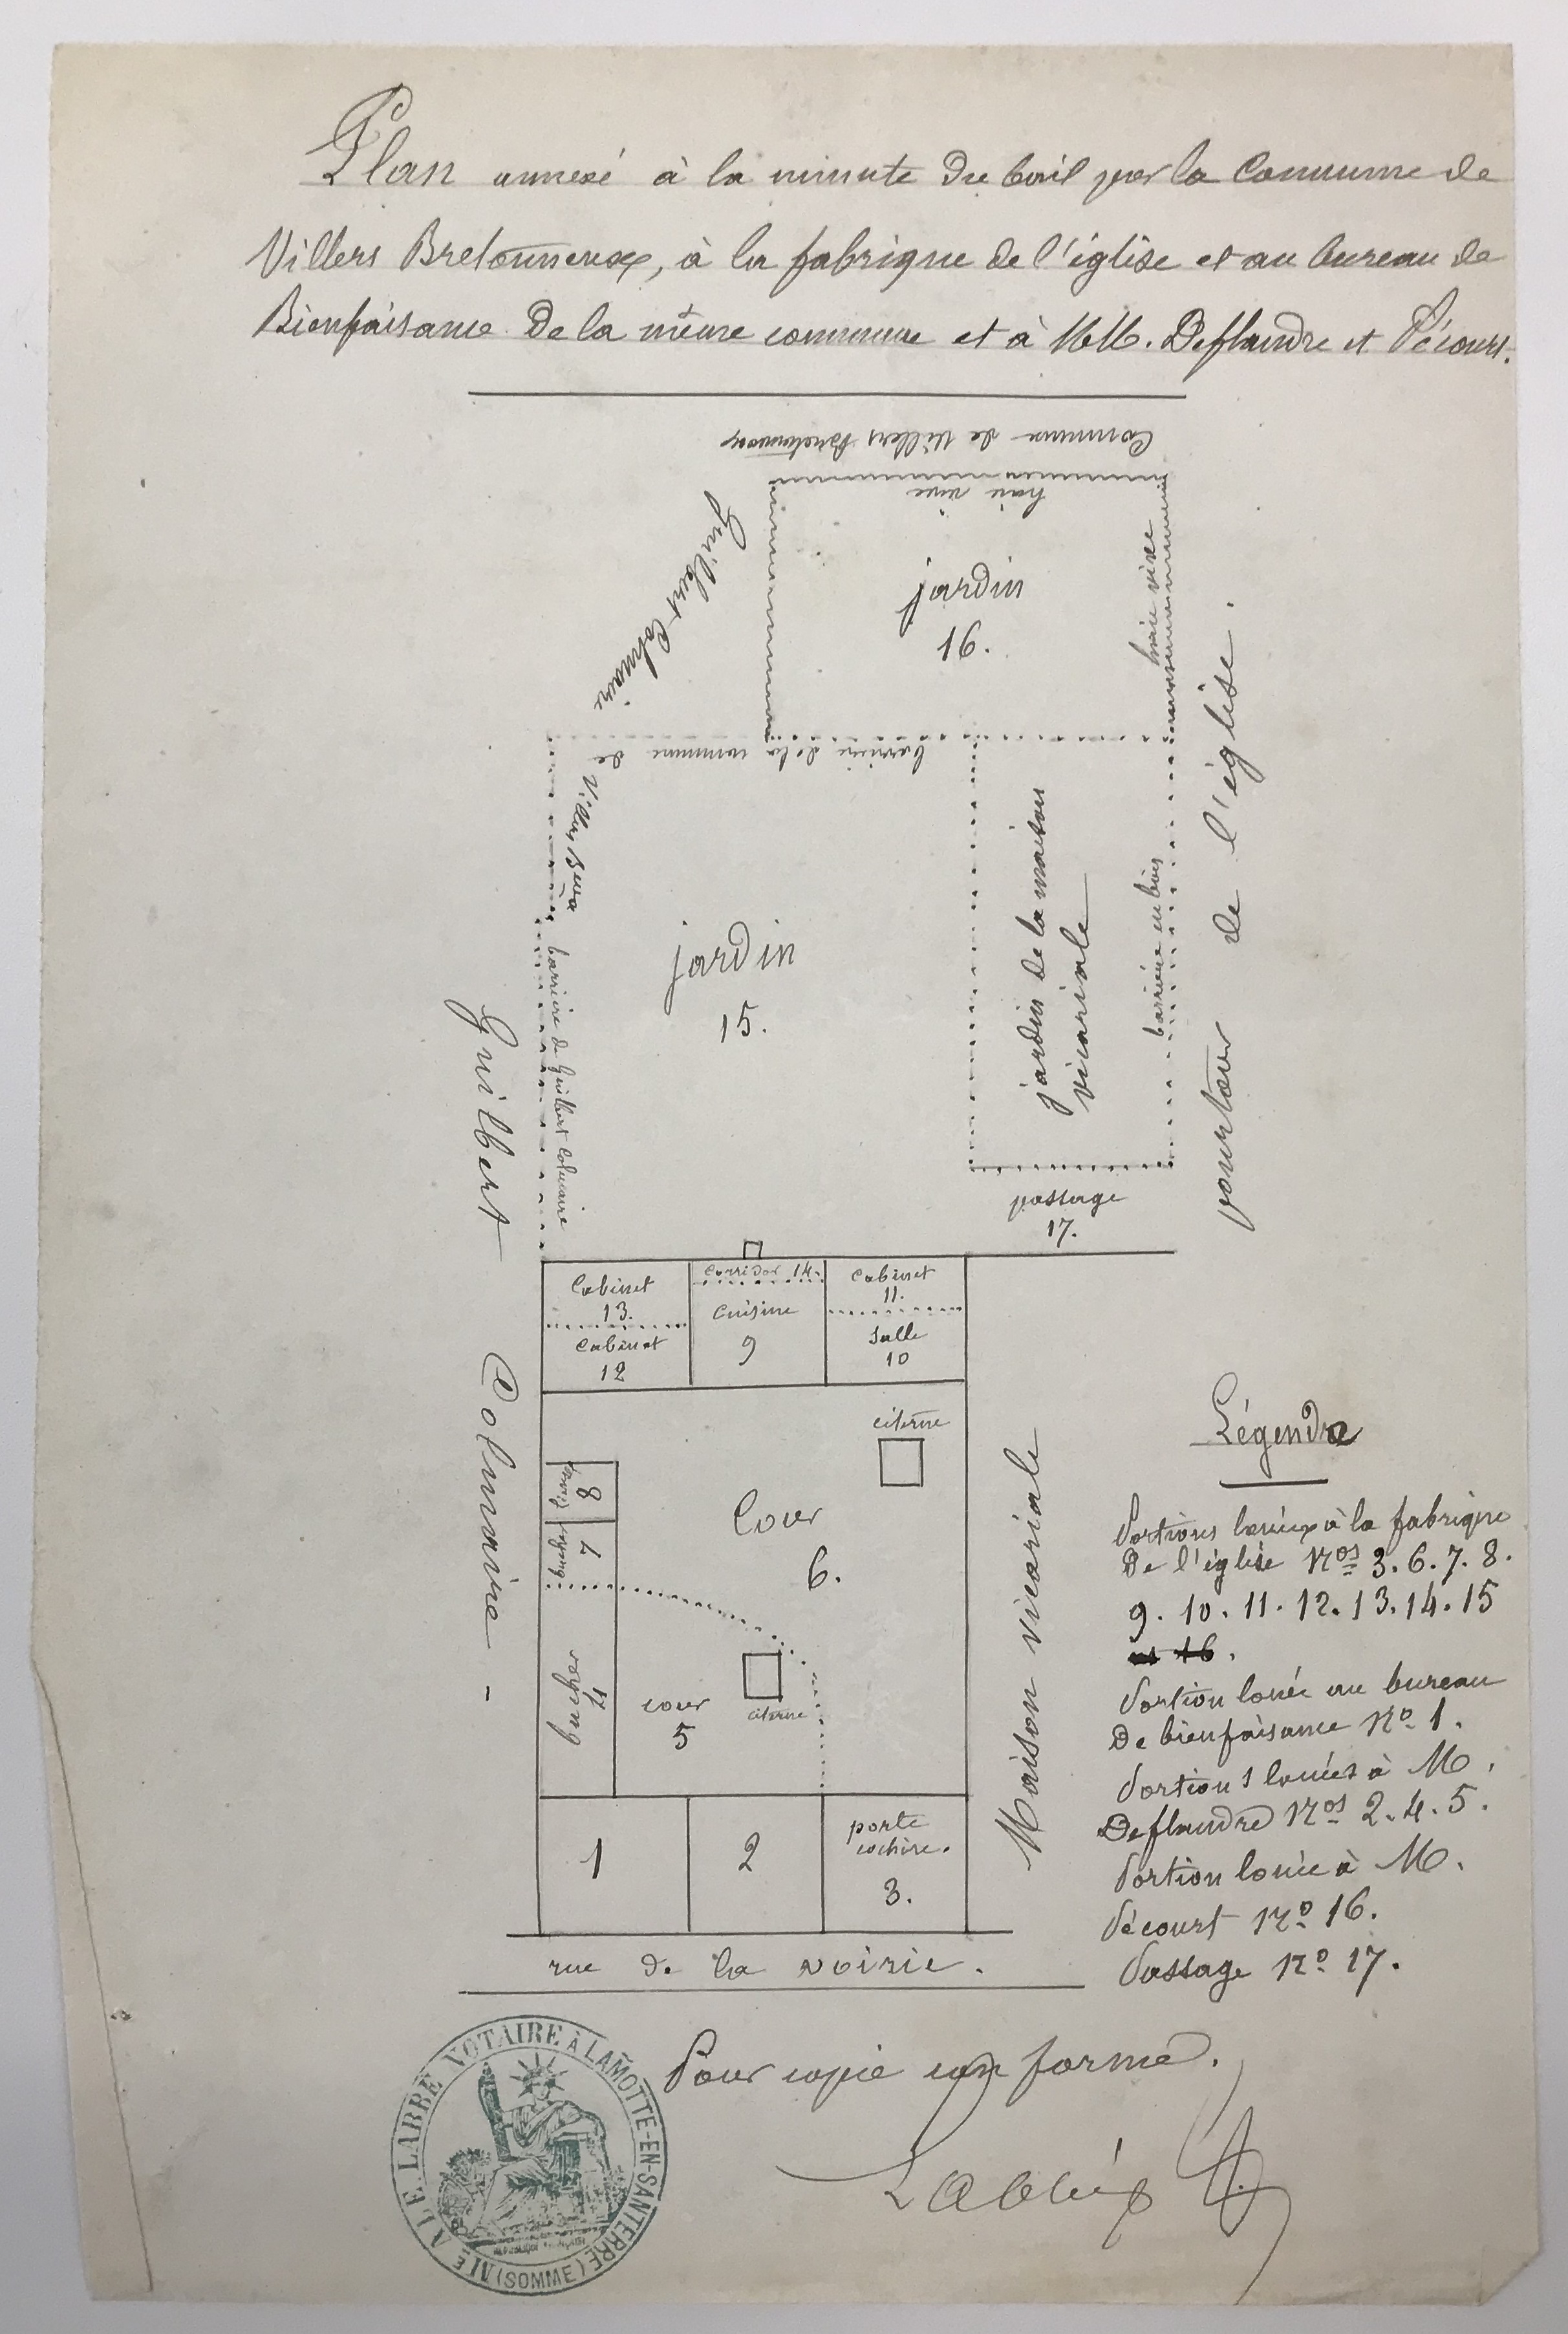 Plan annexé à la minute du bail par la Commune de
Villers Bretonneux, à la fabrique de l'église et au bureau de
Bienfaisance de la même commune et à MM. Deflandre et Pécourt.
Commune de Villers Bretonneux
haie vive
Guilbert Colmaire
jardin
16.
haie vive
barrière de la commune de
Villers B.eux
jardin de la maison
vicariale
barrière en bois
pourtour de l'église.
jardin
15.
barrière de Guilbert Colmaire
Guilbert Colmaire -
passage
17.
Cabinet
13.
Cabinet
12
Corridor 14.
Cuisine
9
Cabinet
11.
Salle
10
citerne
8
7
Cour
6.
4
cour
5
citerne
Maison vicariale
1
2
porte
cochère.
3.
rue de la voirie.
Légende
Portions louées à la fabrique
De l'église Nos 3. 6. 7. 8.
9. 10. 11. 12. 13. 14. 15
et 16.
Portion louée au bureau
De bienfaisance No 1.
Portions louées à M.
Deflandre Nos 2. 4. 5.
Portion louée à M.
Pécourt No 16.
Passage No 17.
Pour copie conforme.
Labbé
A LE LABBE NOTAIRE À LAMOTTE-EN-SANTERRE
(SOMME)